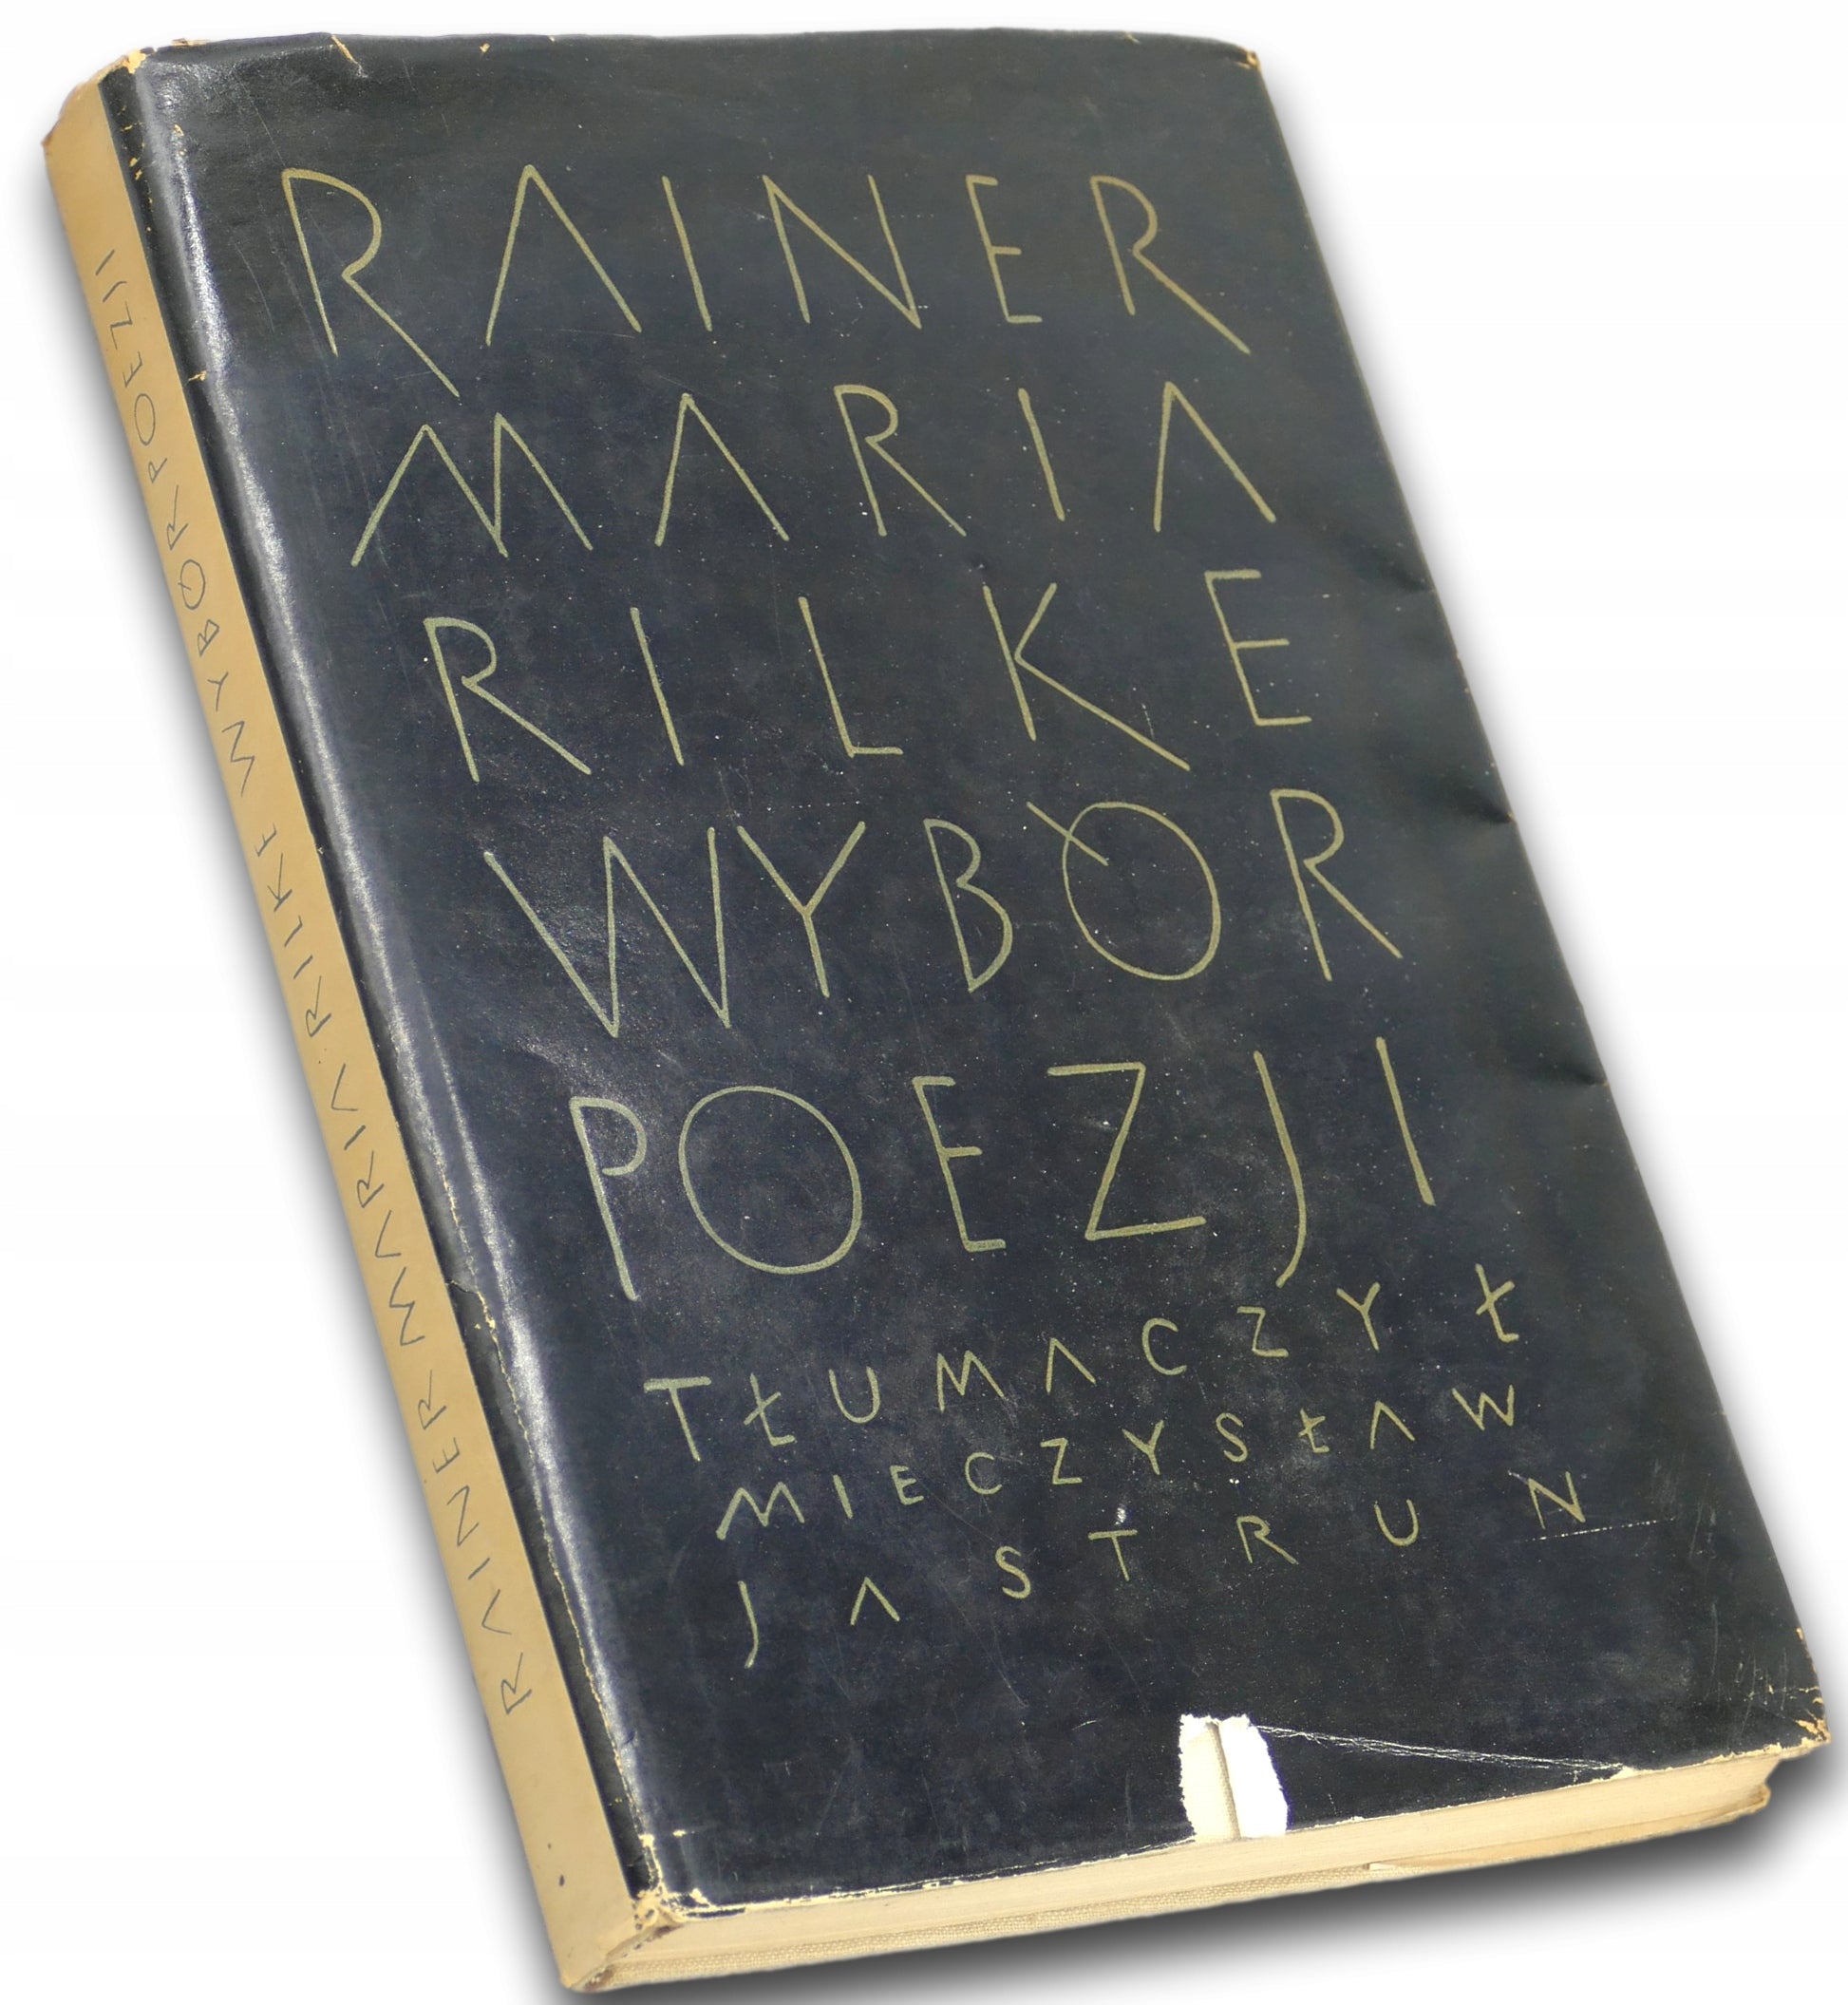 RAINER
MARIA
RILKE
WYBÓR
POEZJI
TŁUMACZYŁ
MIECZYSŁAW
JASTRUN
RAINER MARIA RILKE WYBÓR POEZJI